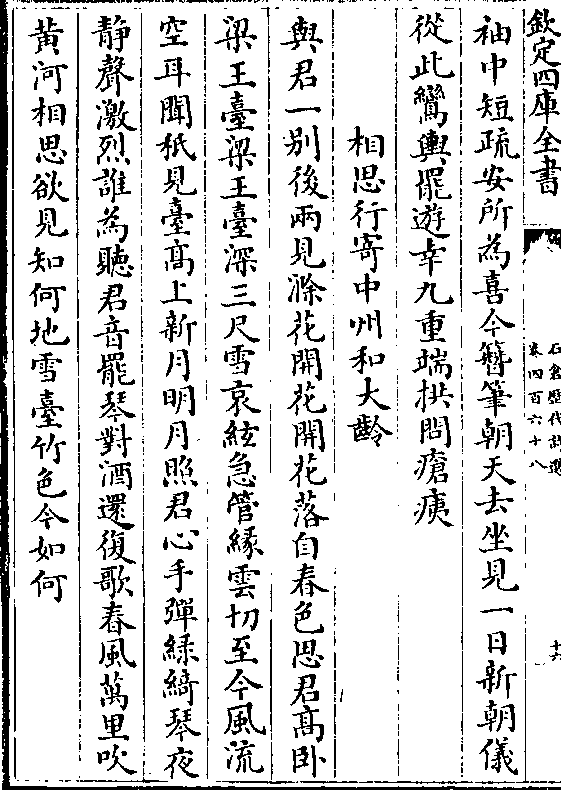 欽定四庫全書
石倉歷代詩選
卷四百六十八
十六
袖中短疏安所為喜今簪筆朝天去坐見一日新朝儀
從此鸞輿罷遊幸九重端拱問瘡痍
相思行寄中州和大齡
與君一别後兩見滁花開花開花落自春色思君髙卧
梁王臺梁王臺深三尺雪哀絃急管緣雲切至今風流
空耳聞秖見臺髙上新月明月照君心手彈緑綺琴夜
静聲激烈誰為聽君音罷琴對酒還復歌春風萬里吹
黄河相思欲見知何地雪臺竹色今如何